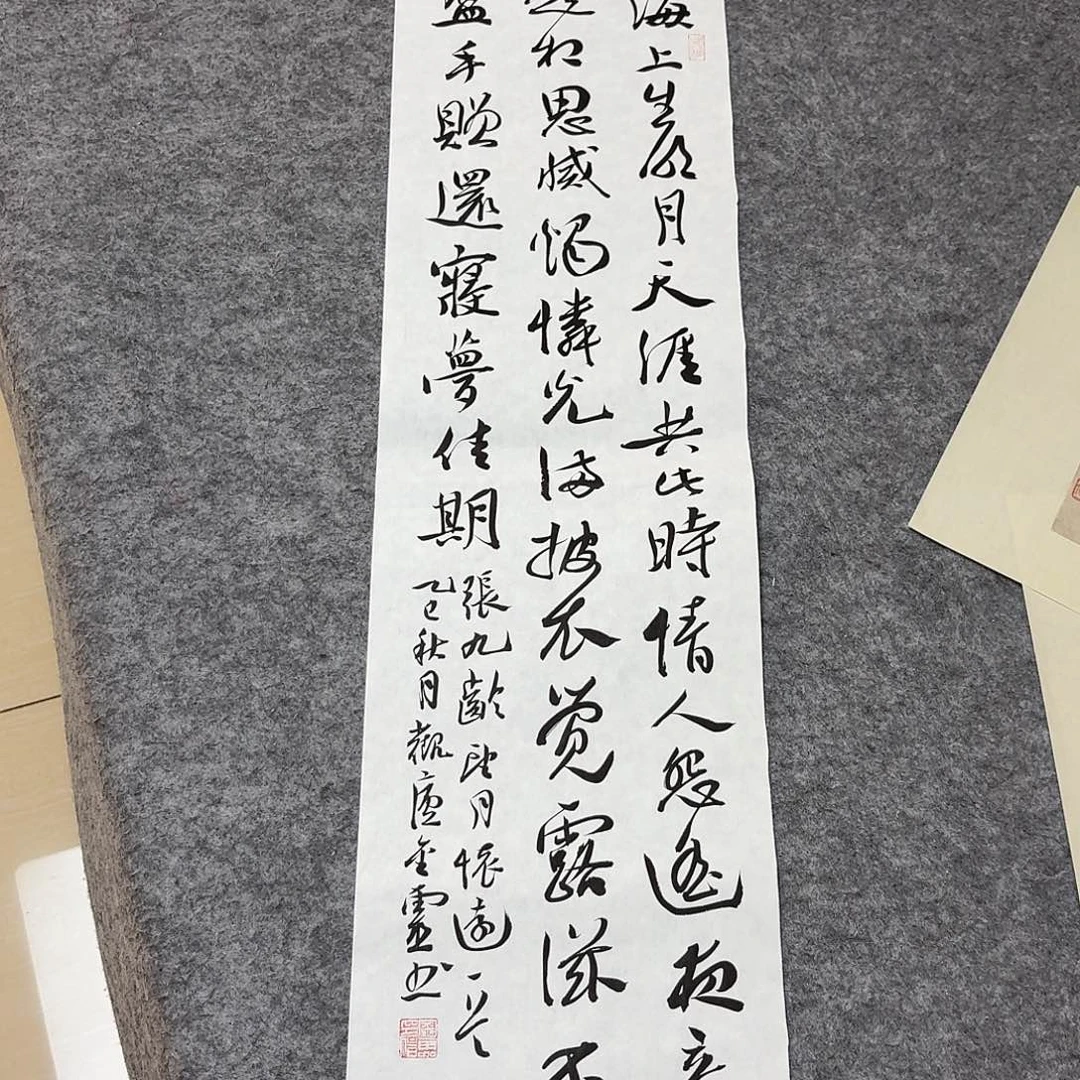 海上生明月天涯共此時情人怨遥夜竟
起相思滅燭憐光滿披衣覺露滋不
盈手贈還寢夢佳期
張九齡望月懷遠一首
乙巳秋月觀廬金靈书